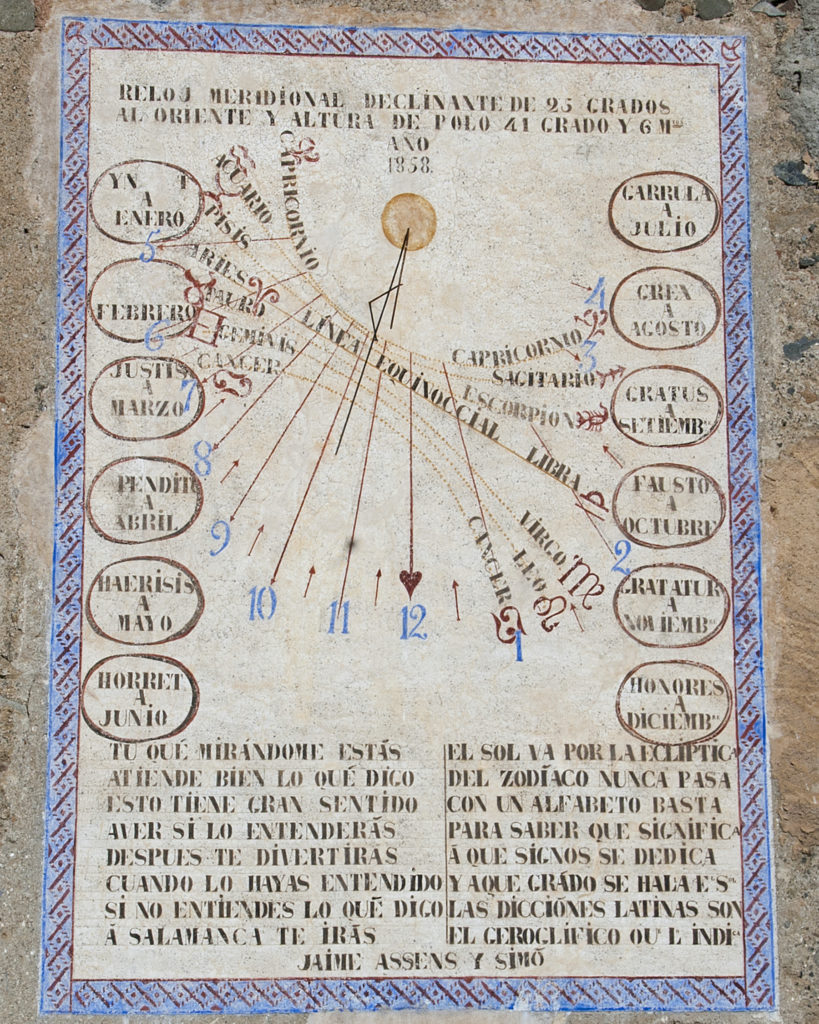 RELOJ MERIDIONAL DECLINANTE DE 25 GRADOS
AL ORIENTE Y ALTURA DE POLO 41 GRADO Y 6 Mᵗᵒˢ
AÑO
1858.
YN T
A
ENERO
FEBRERO
JUSTIS
A
MARZO
PENDITU
A
ABRIL
HAERISIS
A
MAYO
HORRET
A
JUNIO
CAPRICORNIO
ACUARIO
PISIS
ARIES
TAURO
GEMINAS
CANCER
LÍNEA EQUINOCCIAL
CAPRICORNIO
SAGITARIO
ESCORPION
LIBRA
VIRGO
LEO
CANCER
5
6
7
8
9
10
11
12
1
2
3
4
GARRULA
A
JULIO
GREX
A
AGOSTO
GRATUS
A
SETIEMBᵉ
FAUSTO
A
OCTUBRE
GRATATUR
A
NOVIEMBᵉ
HONORES
A
DICIEMBᵉ
TU QUÉ MIRÁNDOME ESTÁS
ATIENDE BIEN LO QUÉ DIGO
ESTO TIENE GRAN SENTIDO
AVER SÍ LO ENTENDERÁS
DESPUES TE DIVERTIRAS
CUANDO LO HAYAS ENTENDIDO
SÍ NO ENTIENDES LO QUÉ DÍGO
Á SALAMANCA TE IRÁS
EL SOL VA POR LA ECLÍPTICA
DEL ZODÍACO NUNCA PASA
CON UN ALFABETO BASTA
PARA SABER QUE SIGNIFICA
Á QUE SÍGNOS SE DEDICA
Y AQUE GRÁDO SE HALA
LAS DICCIÓNES LATINAS SON
EL GEROGLÍFICO
JAIME ASSENS Y SIMÓ